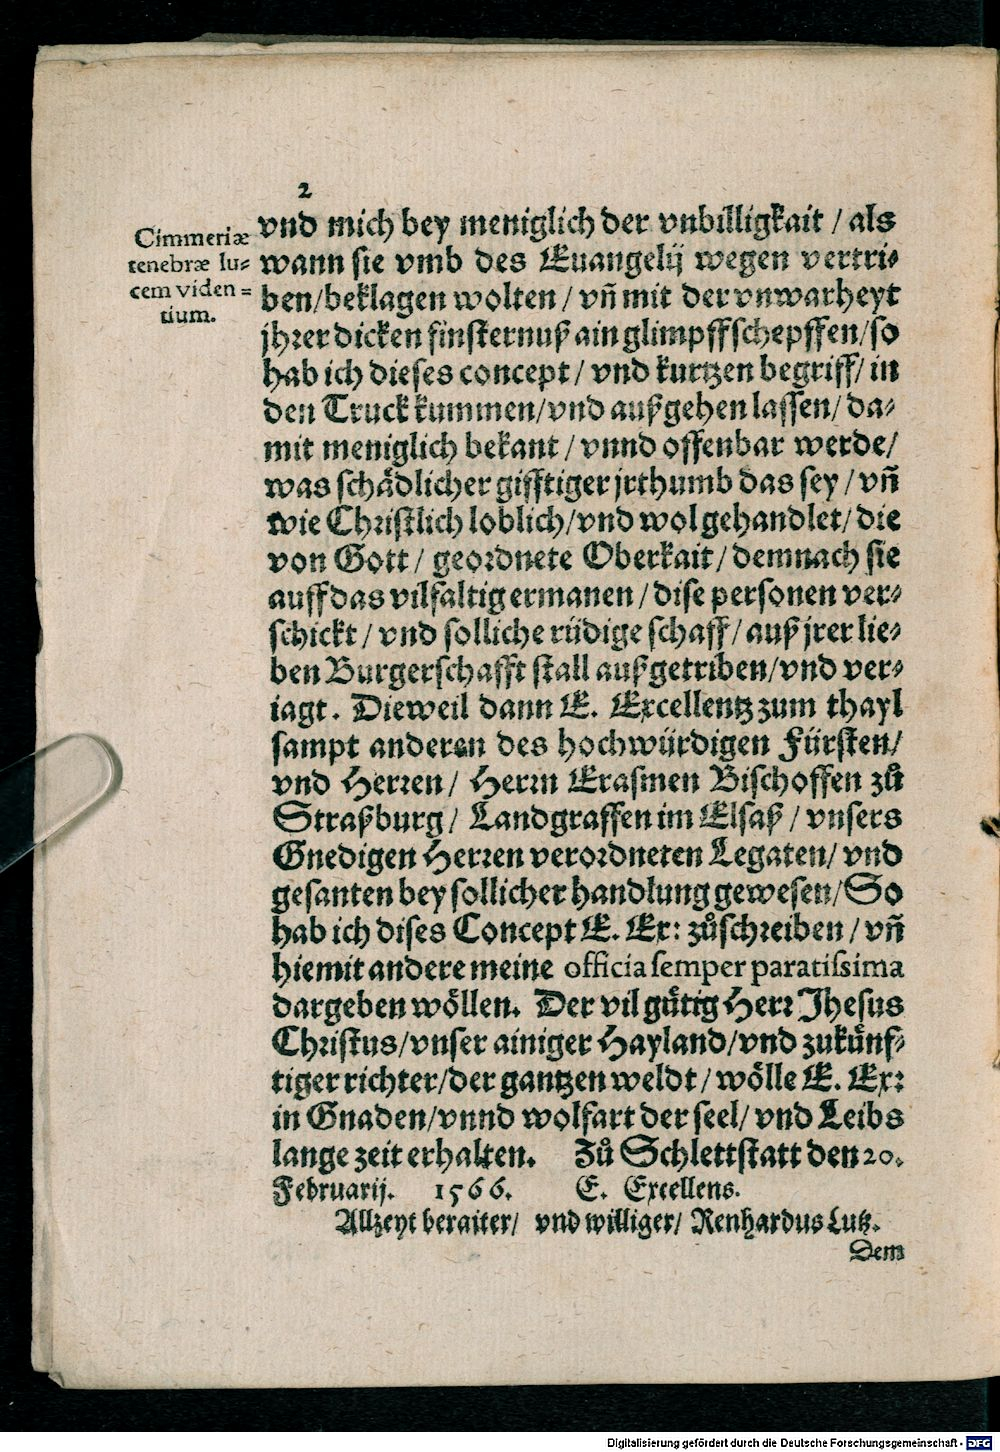 2
Cimmeriæ
tenebræ lu⸗
cem viden⸗
tium.
vnd mich bey meniglich der vnbilligkait / als
wann sie vmb des Euangelij wegen vertri⸗
ben/beklagen wolten / vñ mit der vnwarheyt
jhrer dicken finsternuß ain glimpff schepffen/so
hab ich dieses concept / vnd kurtzen begriff/ in
den Truck kummen/vnd außgehen lassen/ da⸗
mit meniglich bekant / vnnd offenbar werde/
was schådlicher gifftiger jrthumb das sey / vñ
wie Christlich loblich/vnd wol gehandlet/ die
von Gott / geordnete Oberkait / demnach sie
auff das vilfaltig ermanen / dise personen ver⸗
schickt / vnd solliche rüdige schaff / auß jrer lie⸗
ben Burgerschafft stall außgetriben/vnd ver⸗
iagt. Dieweil dann E. Excellentz zum thayl
sampt anderen des hochwürdigen Fürsten/
vnd Herren / Herrn Erasmen Bischoffen zů
Straßburg / Landgraffen im Elsaß / vnsers
Gnedigen Herren verordneten Legaten/ vnd
gesanten bey sollicher handlung gewesen/ So
hab ich dises Concept E. Ex: zůschreiben / vñ
hiemit andere meine officia semper paratissima
dargeben wôllen. Der vil gůtig Herr Jhesus
Christus/vnser ainiger Hayland/vnd zukůnf⸗
tiger richter/der gantzen weldt / wôlle E. Ex:
in Gnaden/vnnd wolfart der seel/ vnd Leibs
lange zeit erhalten. Zů Schlettstatt den 20.
Februarij. 1566. E. Excellens.
Allzeyt beraiter/ vnd williger/ Renhardus Lutz.
Dem
Digitalisierung gefördert durch die Deutsche Forschungsgemeinschaft - DFG